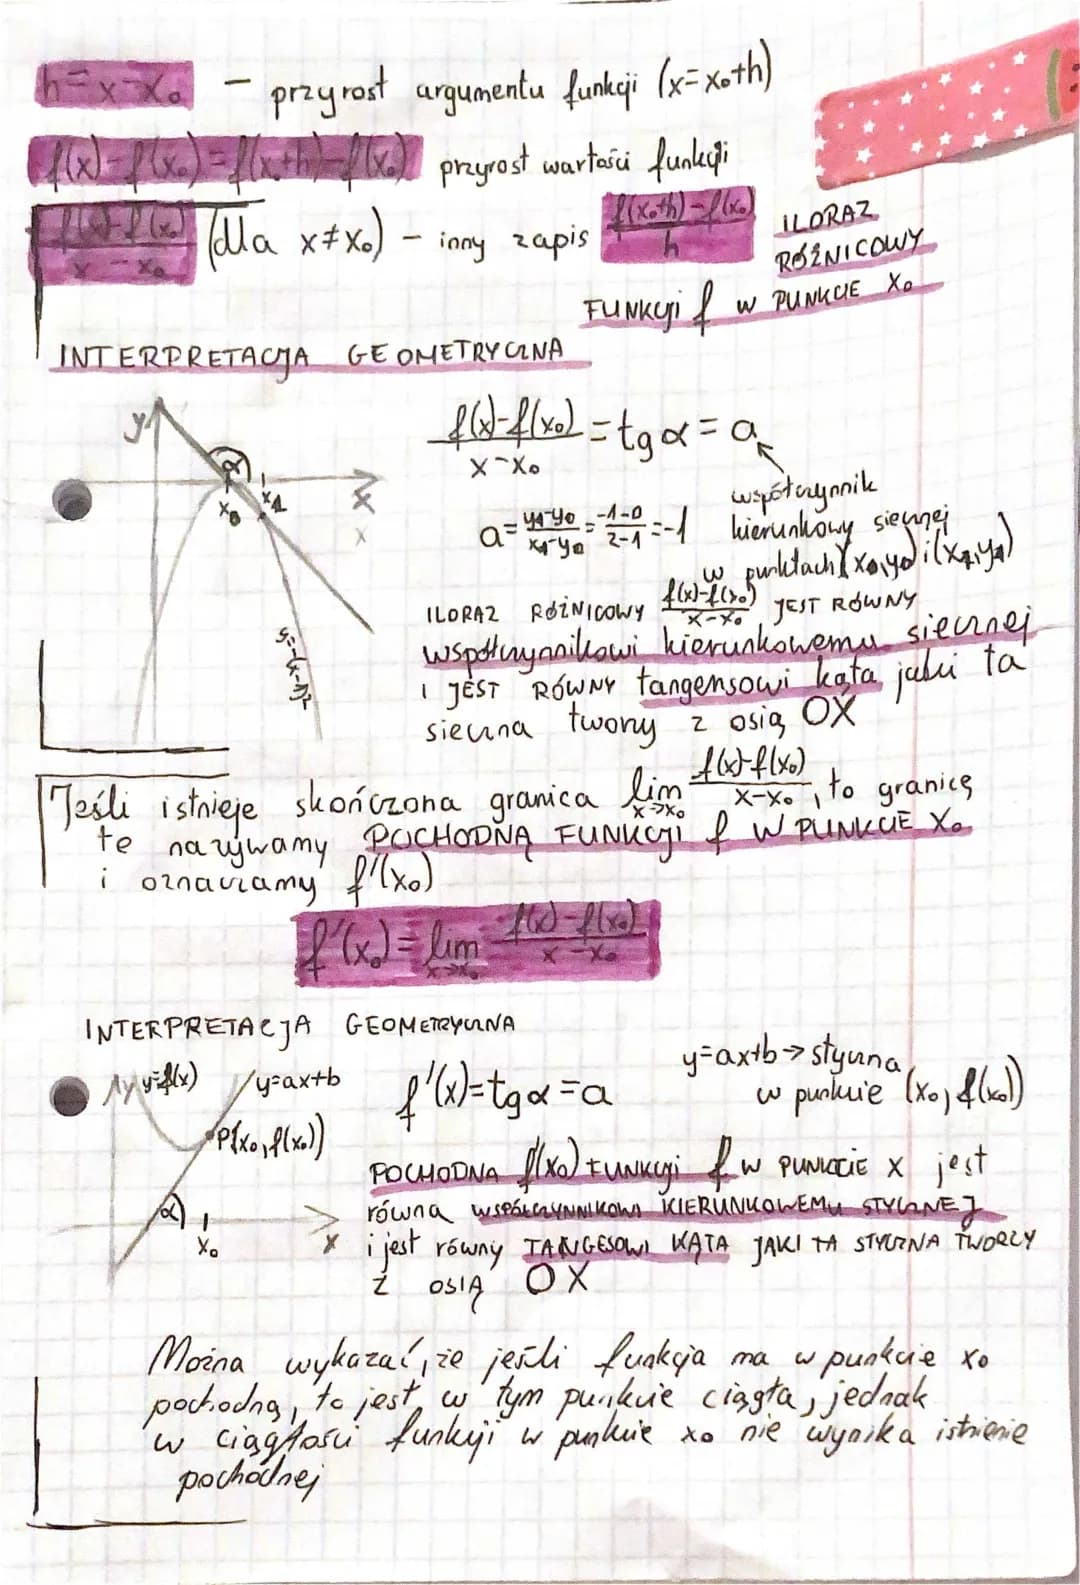 h=x-x₀ – przyrost argumentu funkcji (x=x₀+h)
f(x)-f(x₀)=f(x₀+h)-f(x₀) przyrost wartości funkcji
f(x)-f(x₀)/x-x₀ (dla x≠x₀) – inny zapis f(x₀+h)-f(x₀)/h ILORAZ
RÓŻNICOWY
FUNKCJI f W PUNKCIE X₀
INTERPRETACJA GEOMETRYCZNA
y
f(x)-f(x₀)/x-x₀ = tg α = a
α
x₀ x₁
x
współczynnik
kierunkowy siecznej
w punktach (x₀,y₀) i (x₁,y₁)
a= y₁-y₀/x₁-y₀ = -1-0/2-1 = -1
y=-(x-1)²
ILORAZ RÓŻNICOWY f(x)-f(x₀)/x-x₀ JEST RÓWNY
współczynnikowi kierunkowemu siecznej
I JEST RÓWNY tangensowi kąta jaki ta
sieczna tworzy z osią OX
Jeśli istnieje skończona granica lim x→x₀ f(x)-f(x₀)/x-x₀, to granicę
tę nazywamy POCHODNĄ FUNKCJI f W PUNKCIE X₀
i oznaczamy f'(x₀)
f'(x₀)= lim x→x₀ f(x)-f(x₀)/x-x₀
INTERPRETACJA GEOMETRYCZNA
y y=f(x) y=ax+b
f'(x)=tg α=a
y=ax+b→ styczna
w punkcie (x₀, f(x₀))
P(x₀, f(x₀))
α
x₀
x
POCHODNA f'(x₀) FUNKCJI f W PUNKCIE X jest
równa WSPÓŁCZYNNIKOWI KIERUNKOWEMU STYCZNEJ
i jest równy TANGESOWI KĄTA JAKI TA STYCZNA TWORZY
Z OSIĄ OX
Można wykazać, że jeśli funkcja ma w punkcie x₀
pochodną, to jest w tym punkcie ciągła, jednak
w ciągłości funkcji w punkcie x₀ nie wynika istnienie
pochodnej